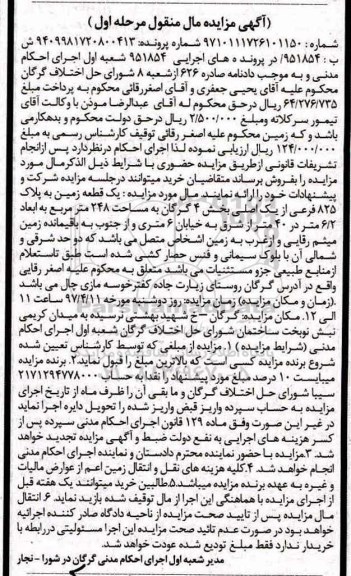 (آگهی مزایده مال منقول مرحله اول)
شماره : 9710111726101150 شماره پرونده: 9409981720800413 ش
ب : 951854/ در پرونده های اجرایی 951854 شعبه اول اجرای احکام
مدنی و به موجب دادنامه صادره 626 ازشعبه 8 شورای حل اختلاف گرگان
محکوم علیه آقای یحیی جعفری و آقای اصغررقائی محکوم به پرداخت مبلغ
64/276/735 ریال درحق محکوم لـه آقای عبدالرضا موذن با وکالت آقای
تیمور سرکلاته ومبلغ 2/500/000 ریال درحق دولت محکوم و بدهکارمی
باشد و کـه زمین محکوم علیه اصغـر رقائی توقیف کارشناس رسمی به مبلغ
124/000/000 ریال ارزیابی نموده لـذا اجرای احکام درنظردارد پس ازانجام
تشریفات قانونی ازطریق مزایده حضوری با شرایط ذیل الذکرمال مـورد
مزایده را بفروش برساند متقاضیان خرید میتوانند درجلسه مزایده شرکت و
پیشنهادات خـود را ارائه نمایند. مـال مورد مزایده : یک قطعه زمین به پلاک
825 فرعی از یک اصلی بخش 4 گرگان به مساحت 248 متر مربع به ابعاد
6/2 متر در 40 متر از شرق به خیابان 6 متری و از جنوب به باقیمانده زمین
میثم رقایی و ازغرب به زمین اشخاص متصل می باشد که دو حد شرقی و
شمالی آن با بلوک سیمانی و فنس حصار کشی شده است طبق تاستعلام
ازمنابع طبیعی جزو مستثنیات می باشد متعلق به محکوم علیه اصغر رقایی
واقع در آدرس گرگان روستای زیارت جاده کفترخوسه مازی چال می باشد
.(زمان و مکان مزایده) زمان مزایده: روز دوشنبه مورخه 97/4/11 ساعت 11
الی 12. مکان مزایده: گرگان – خ شهید بهشتی نرسیده به میدان کریمی
نبش نوبخت ساختمان شورای حل اختلاف گرگان شعبه اول اجرای احکام
مدنی (شرایط مزایده) 1.مزایده از مبلغی که توسط کارشناس تعیین شده
شروع برنده مزایده کسی است که بالاترین مبلغ را قبول نماید.2. برنده مزایده
میبایست 10 درصد مبلغ مورد پیشنهاد را نقدا به حساب 2171294778000
سیبا شورای حل اختلاف گرگان و ما بقی آن را ظرف ماه از تاریخ اجرای
مزایده به حساب سپرده واریز فیش واریز شده را تحویل دایره اجرا نماید
در غیر این صورت وفق ماده 129 قانون اجرای احکام مدنی سپرده پس از
کسر هزینه های اجرایی به نفع دولت ضبط و آگهی مزایده تجدید خواهد
شد. 3.مزایده با حضور نماینده محترم دادستان و نماینده اجرای احکام مدنی
انجام خواهد شد. 4.کلیه هزینه های نقل و انتقال زمین اعم از عوارض مالیات
و غیره به عهده برنده مزایده میباشد.5.طالبین خرید میتوانند یک هفته قبل
از اجرای مزایده با هماهنگی این اجرا از مال توقیف شده بازید نماید. 6. انتقال
مـال مزایده پس از تایید صحت مزایده از ناحیه دادگاه صادر کننده اجرائیه
خواهد بـود در صورت عدم تائید صحت مزایده این اجرا مسئولیتی دررابطه با
خریـدار ندارد فقط مبلغ تودیع شده عودت خواهد شد.
مدیر شعبه اول اجرای احکام مدنی گرگان در شورا – نجار